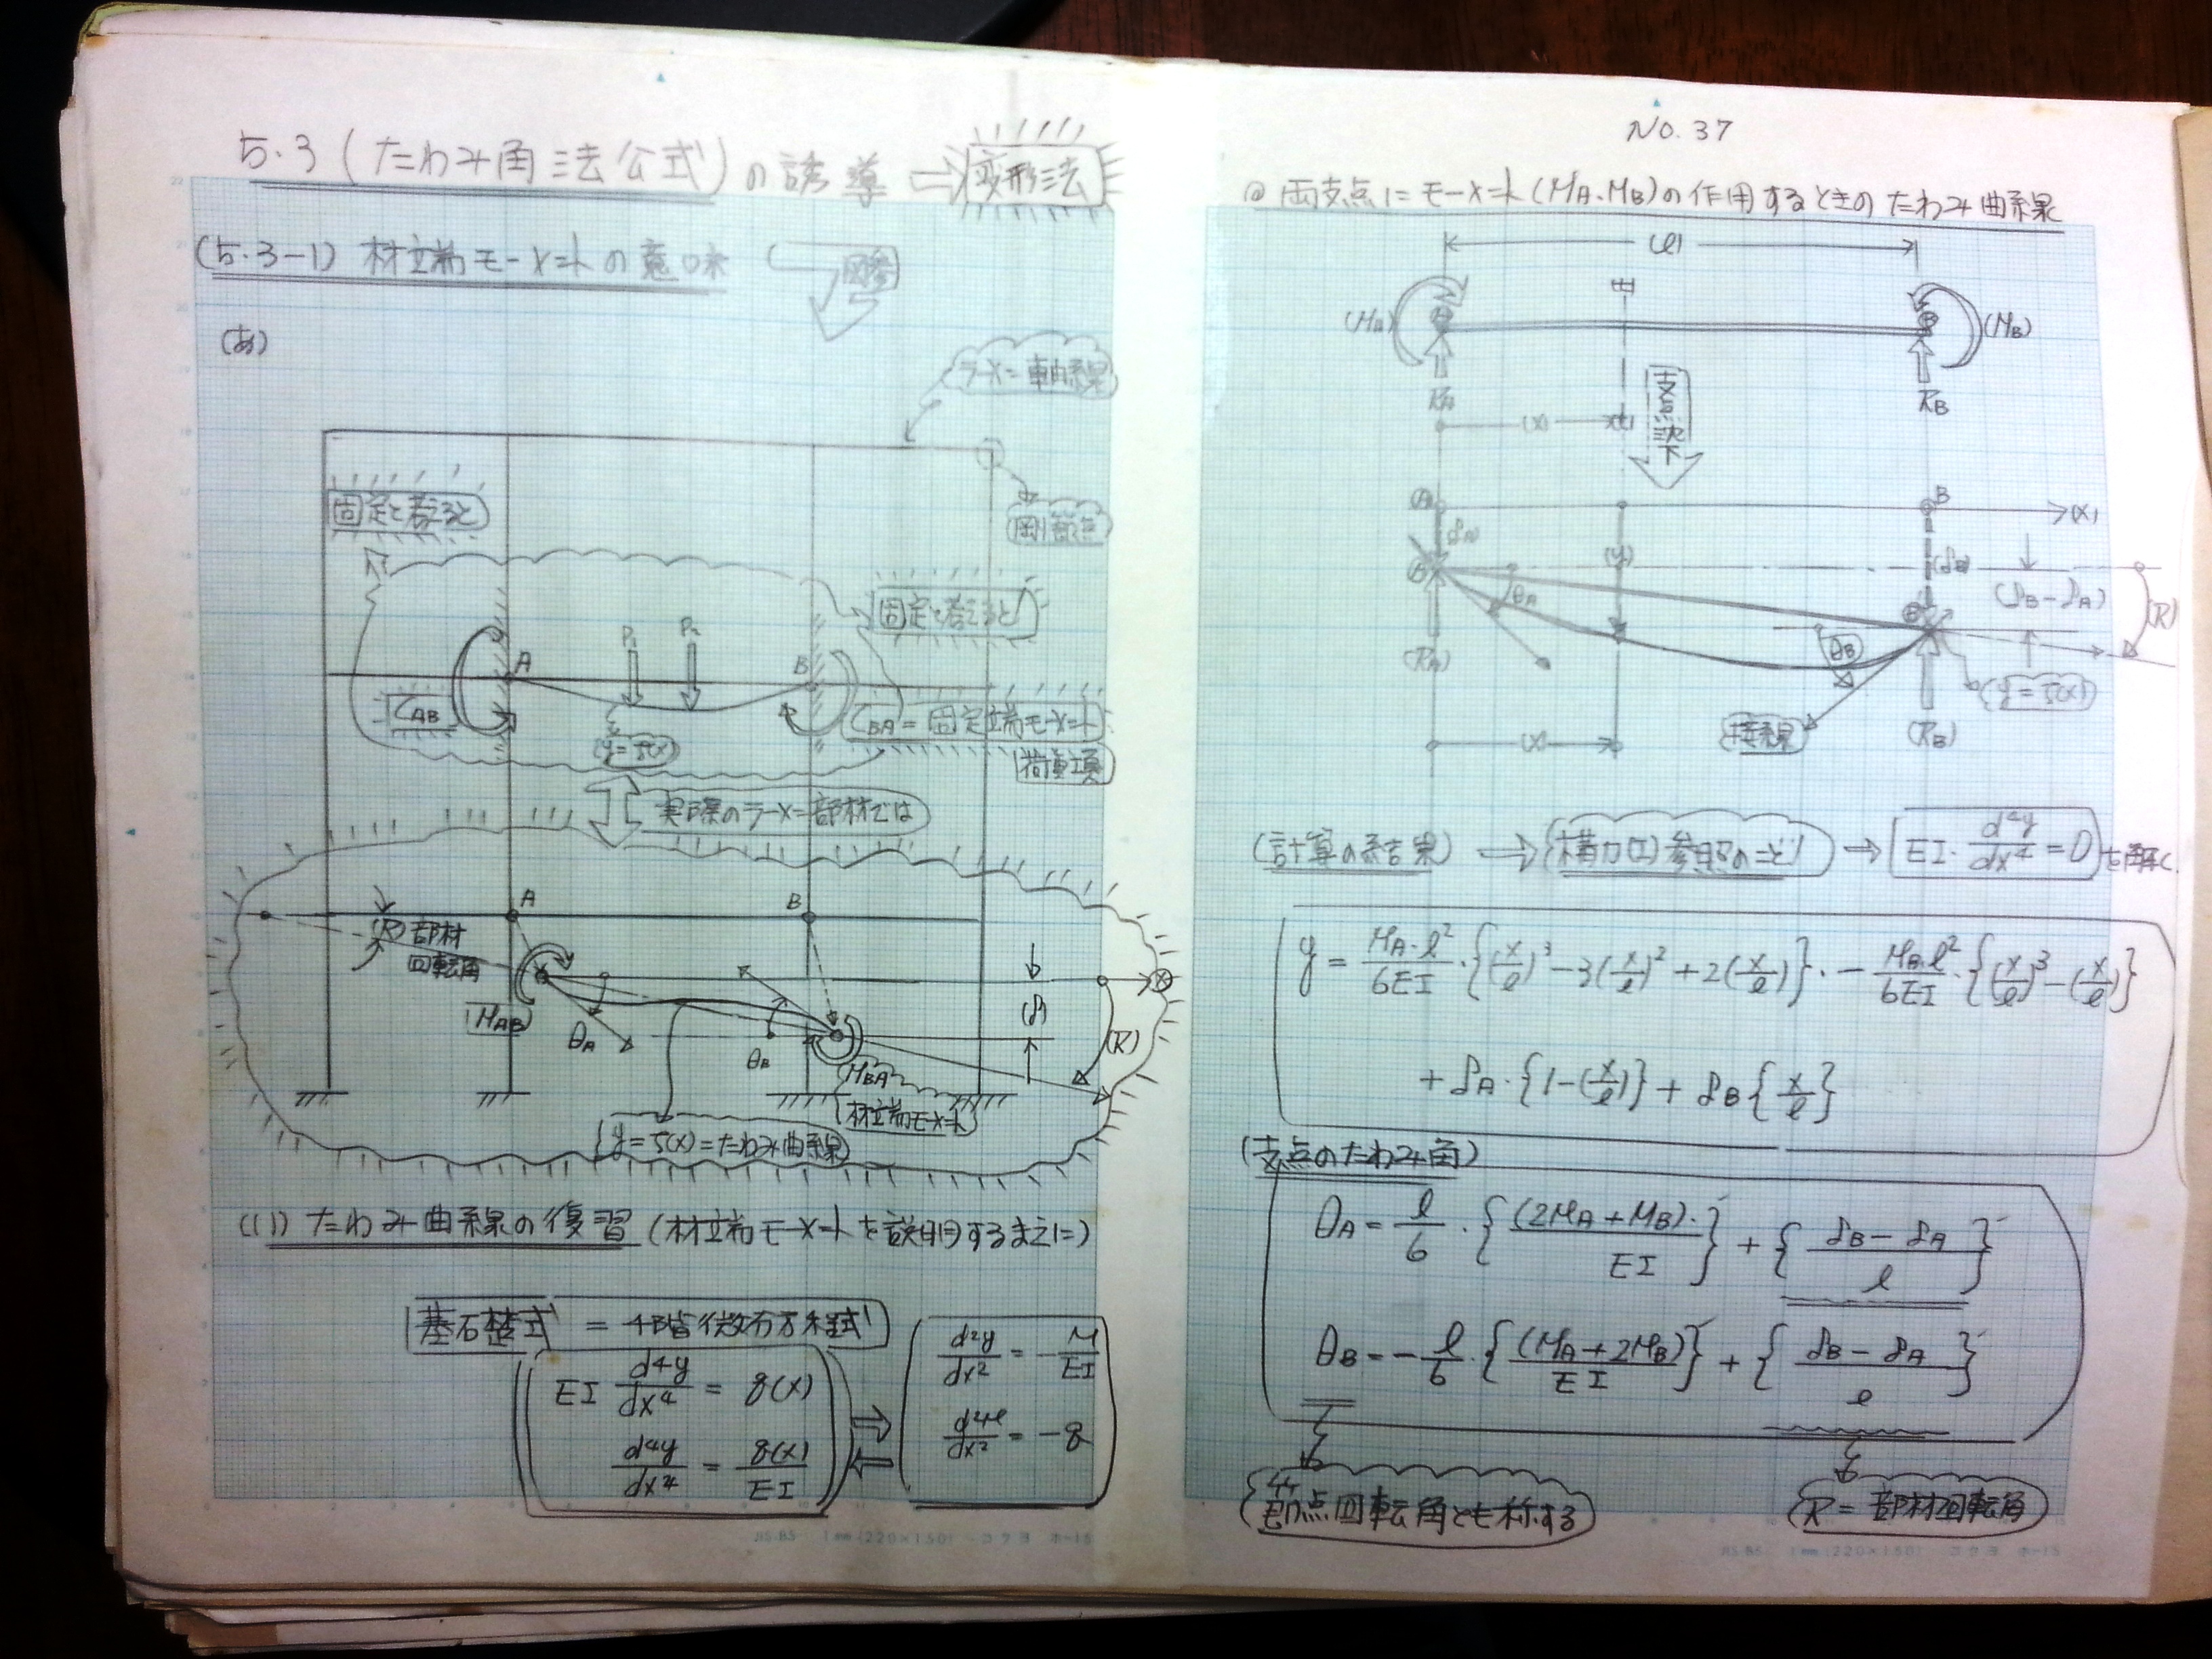 5.3 (たわみ角法公式) の誘導 ⇒ 変形法
(5.3-1) 材端モーメントの意味
(あ)
ラーメン軸線
固定と考えると
剛節点
固定と考えると
P1 P2
A B
CAB
CBA = 固定端モーメント
(y = f(x))
荷重項
実際のラーメン部材では
A B
(R) 部材
回転角
(MAB)
θA
θB
(δ)
(R)
MBA
材端モーメント
y = f(x) = たわみ曲線
(1) たわみ曲線の復習 (材端モーメントを説明するまえに)
基礎式 = 4階微分方程式
EI d⁴y/dx⁴ = q(x)
d⁴y/dx⁴ = q(x)/EI
d²y/dx² = -M/EI
d²M/dx² = -q
JIS.B5 1mm(220×150) コクヨ ホ-15
No. 37
◎ 両支点にモーメント (MA.MB) の作用するときの たわみ曲線
(l)
(MA) (MB)
RA RB
(x)
支点沈下
A B (x)
δA (y) (δB)
θA
(δB-δA)
(R)
θB
(RA)
(y = f(x))
接線
(RB)
(x)
(計算の結果) ⇒ (構力(I)参照のこと) → EI・d⁴y/dx⁴ = 0 を解く.
y = MA・l²/6EI・{(x/l)³ - 3(x/l)² + 2(x/l)}・ - MB・l²/6EI・{(x/l)³ - (x/l)}
+ δA・{1-(x/l)} + δB{x/l}
(支点のたわみ角)
θA = l/6・{(2MA+MB)・/EI} + {δB-δA/l}
θB = -l/6・{(MA+2MB)/EI} + {δB-δA/l}
節点回転角とも称する
R = 部材回転角
JIS.B5 1mm(220×150) コクヨ ホ-15